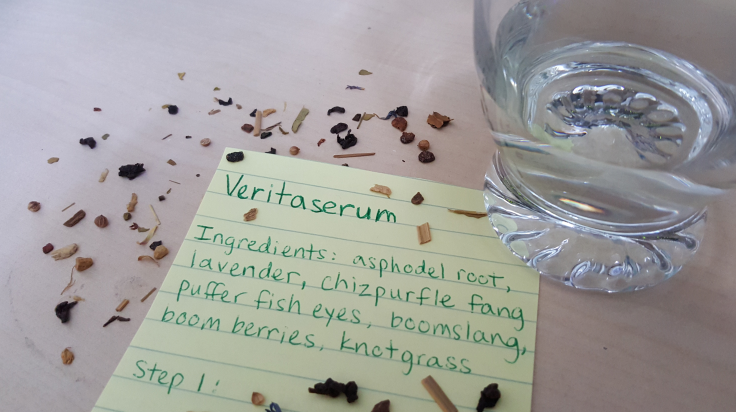 Veritaserum
Ingredients: asphodel root,
lavender, chizpurfle fang
puffer fish eyes, boomslang,
boom berries, knotgrass
Step 1: